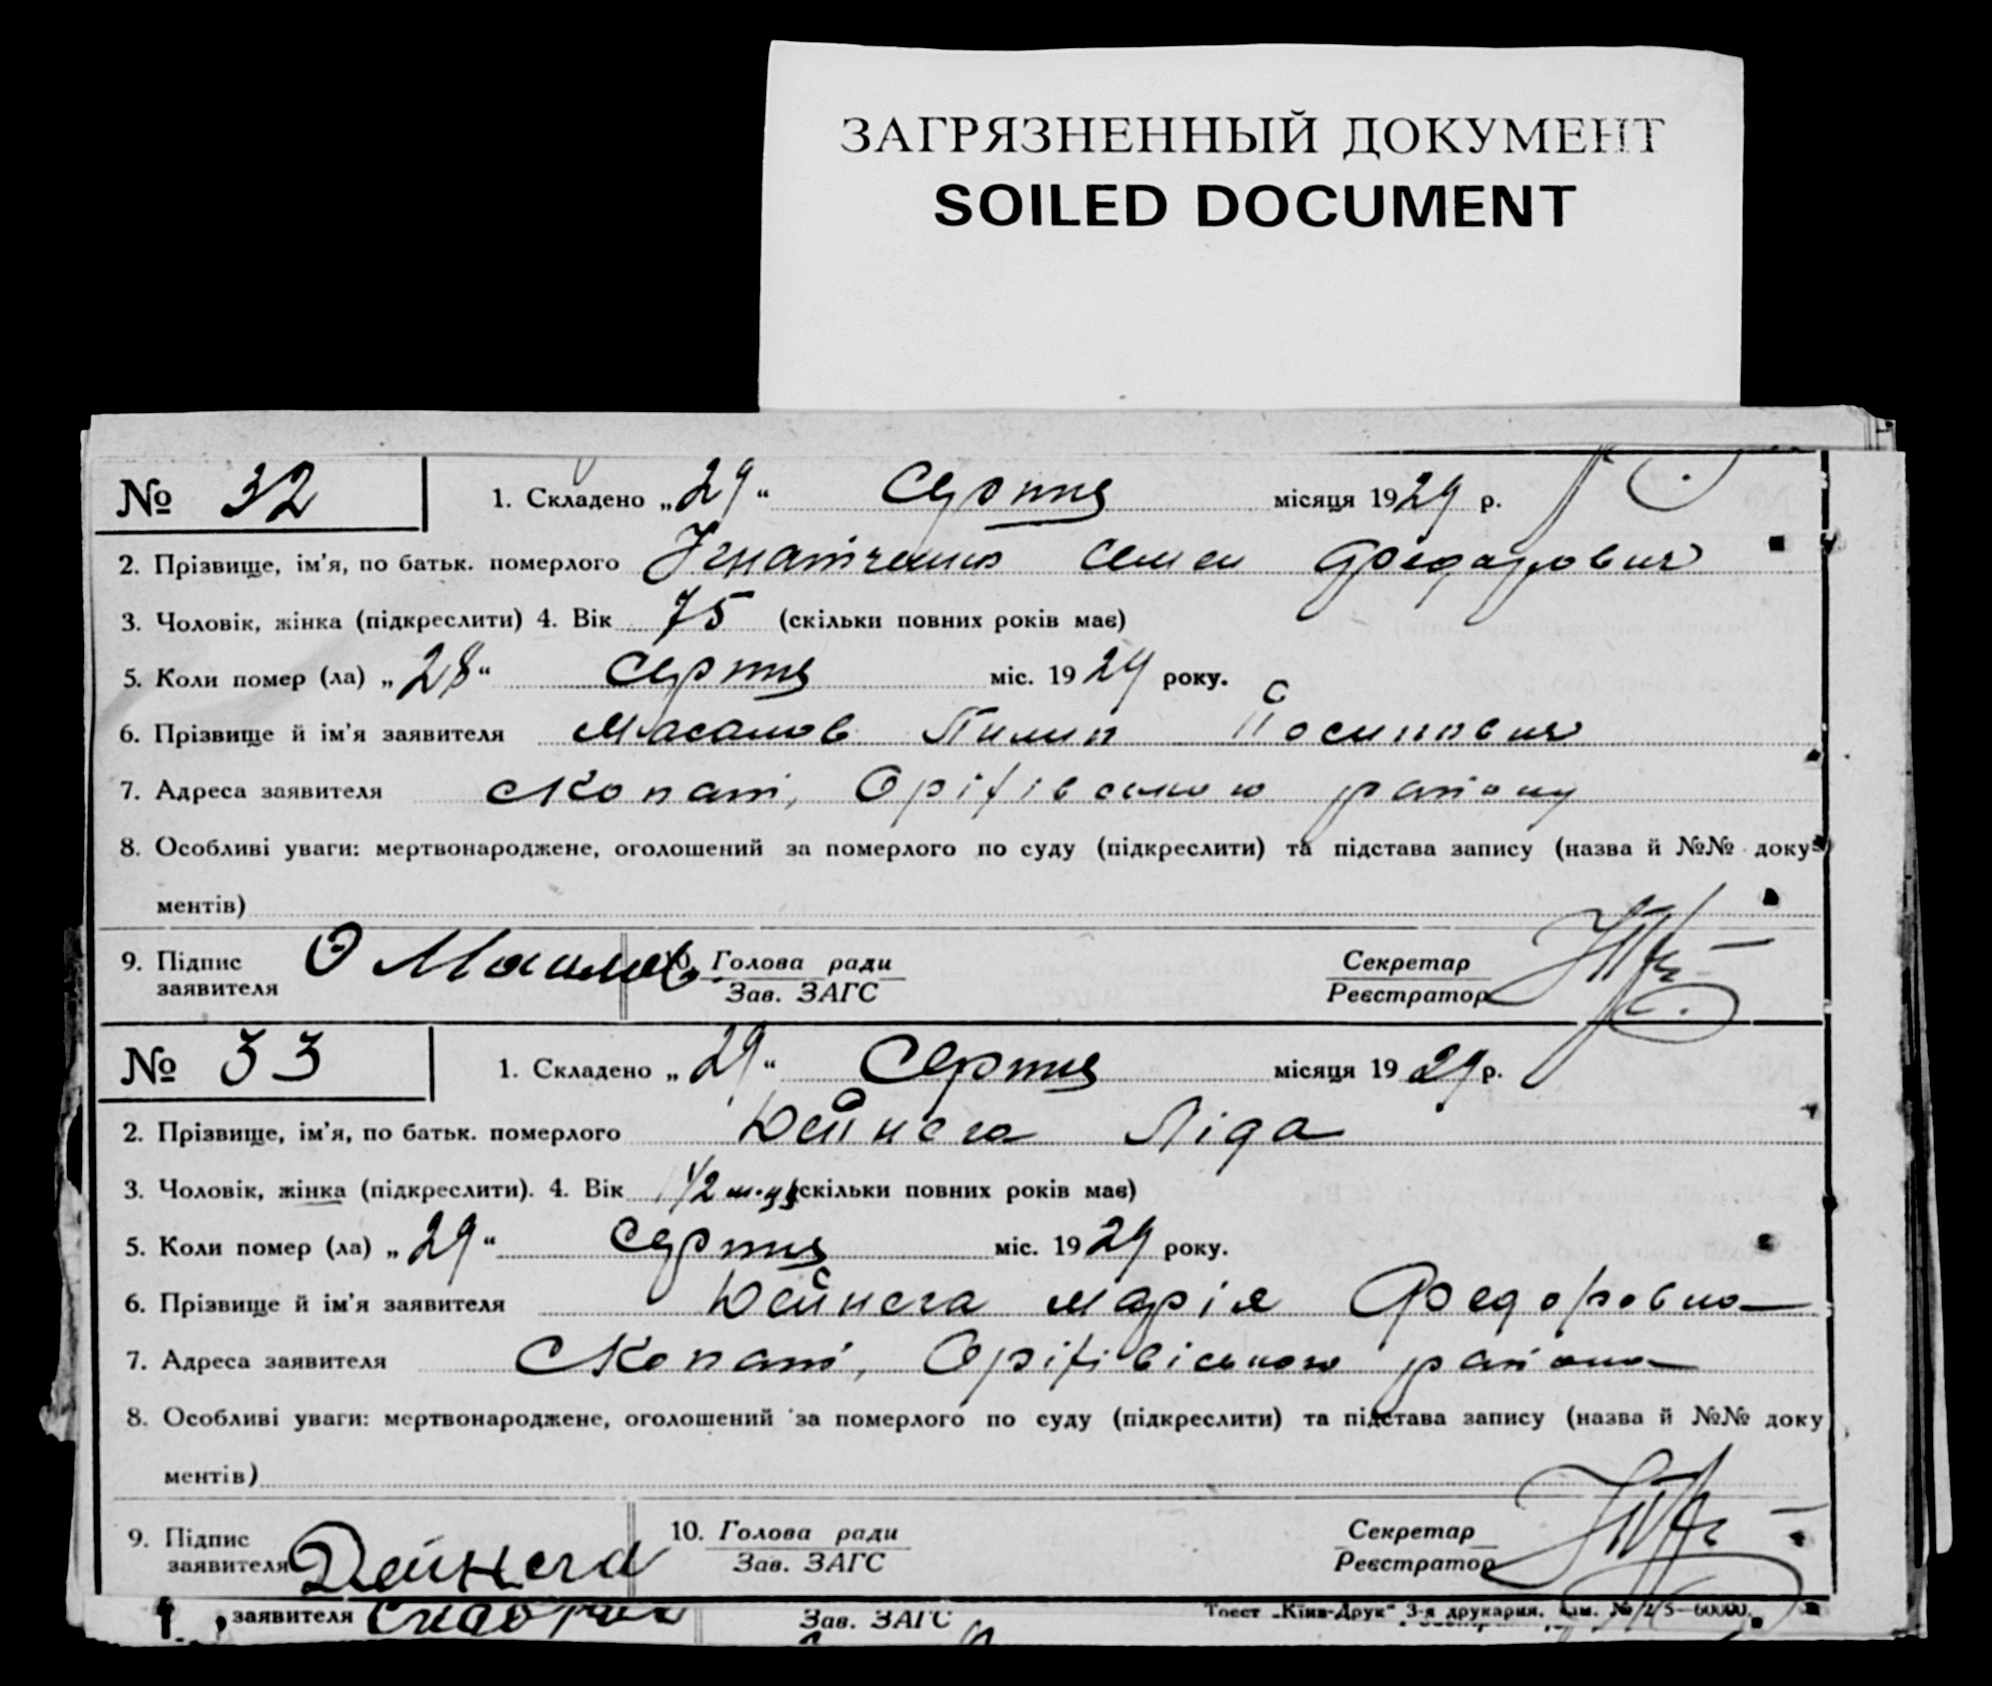 ЗАГРЯЗНЕННЫЙ ДОКУМЕНТ
SOILED DOCUMENT
№ 32 1. Складено „29“ Серпня місяця 1929 р.
2. Прізвище, ім'я, по батьк. померлого Ігнатченко Семен Федорович
3. Чоловік, жінка (підкреслити) 4. Вік 75 (скільки повних років має)
5. Коли помер (ла) „28“ Серпня міс. 1929 року.
6. Прізвище й ім'я заявителя Масалов Пилип Йосипович
7. Адреса заявителя с Копані, Оріхівського району
8. Особливі уваги: мертвонароджене, оголошений за померлого по суду (підкреслити) та підстава запису (назва й №№ доку-
ментів)
9. Підпис заявителя Масалов 10. Голова ради Зав. ЗАГС Секретар Реєстратор
№ 33 1. Складено „29“ Серпня місяця 1929 р.
2. Прізвище, ім'я, по батьк. померлого Дейнега Ліда
3. Чоловік, жінка (підкреслити). 4. Вік 1/2 м-ця (скільки повних років має)
5. Коли помер (ла) „29“ серпня міс. 1929 року.
6. Прізвище й ім'я заявителя Дейнега Марія Федоровна
7. Адреса заявителя с Копані, Оріхівіського району
8. Особливі уваги: мертвонароджене, оголошений за померлого по суду (підкреслити) та підстава запису (назва й №№ доку
ментів)
9. Підпис заявителя Дейнега 10. Голова ради Зав. ЗАГС Секретар Реєстратор
заявителя Зав. ЗАГС Трест „Київ-Друк" 3-я друкарня.